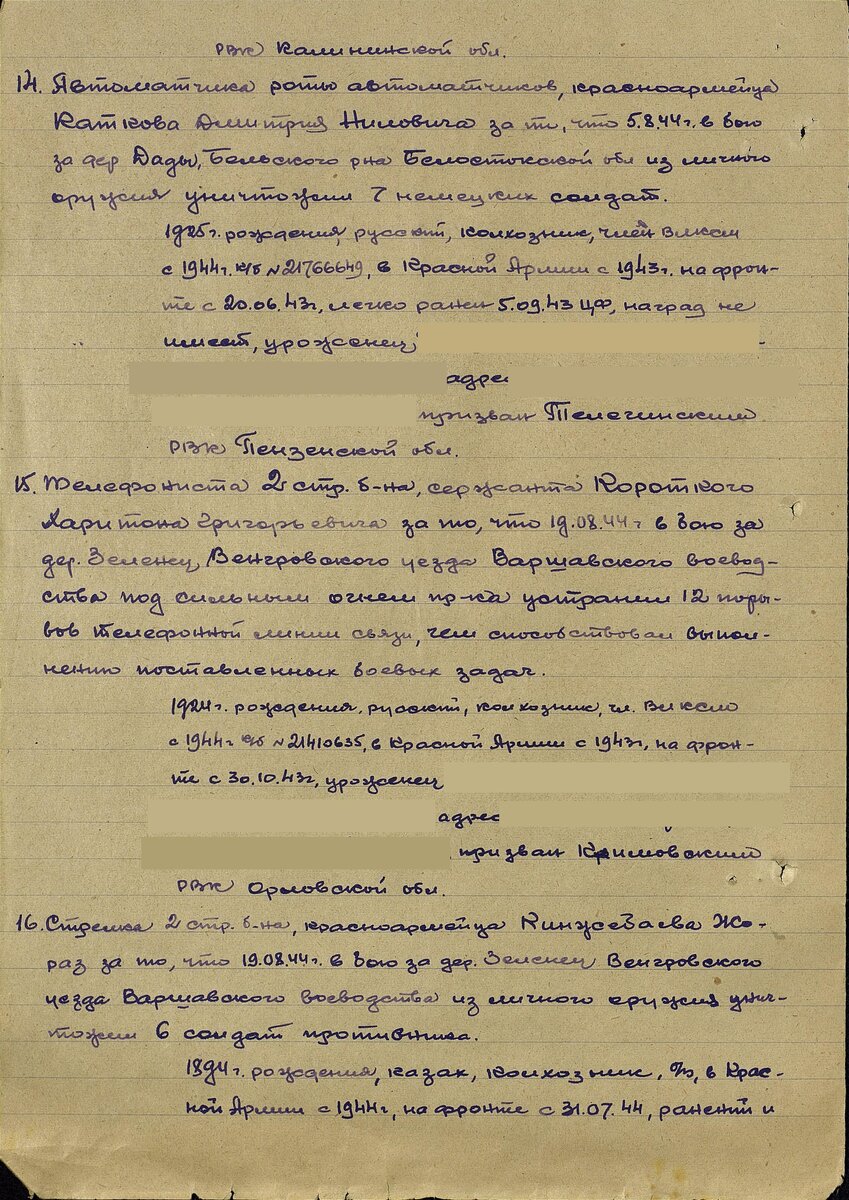 РВК Калининской обл.
14. Автоматчика роты автоматчиков, красноармейца
Каткова Дмитрия Ниловича за то, что 5.8.44 г. в бою
за дер. Дады, Бельского р-на Белостокской обл из личного
оружия уничтожил 7 немецких солдат.
1925 г. рождения, русский, колхозник, член ВЛКСМ
с 1944 г. к/б №21766649, в Красной Армии с 1943 г. на фрон-
те с 20.06.43 г, легко ранен 5.09.43 ЦФ, наград не
имеет, уроженец
адрес
призван Телегинским
РВК Пензенской обл.
15. Телефониста 2 стр. б-на, сержанта Короткого
Харитона Григорьевича за то, что 19.08.44 г в бою за
дер. Зеленец Венгровского уезда Варшавского воевод-
ства под сильным огнем пр-ка устранил 12 поры-
вов телефонной линии связи, чем способствовал выпол-
нению поставленных боевых задач.
1924 г. рождения, русский, колхозник, чл. ВЛКСМ
с 1944 г к/б №21410635, в Красной Армии с 1943 г, на фрон-
те с 30.10.43 г, уроженец
адрес
призван
РВК Орловской обл.
16. Стрелка 2 стр. б-на, красноармейца Жо-
раз за то, что 19.08.44 г. в бою за дер. Зеленец Венгровского
уезда Варшавского воеводства из личного оружия унич-
тожил 6 солдат противника.
1894 г. рождения, казах, колхозник, б/п, в Крас-
ной Армии с 1944 г, на фронте с 31.07.44, ранений и